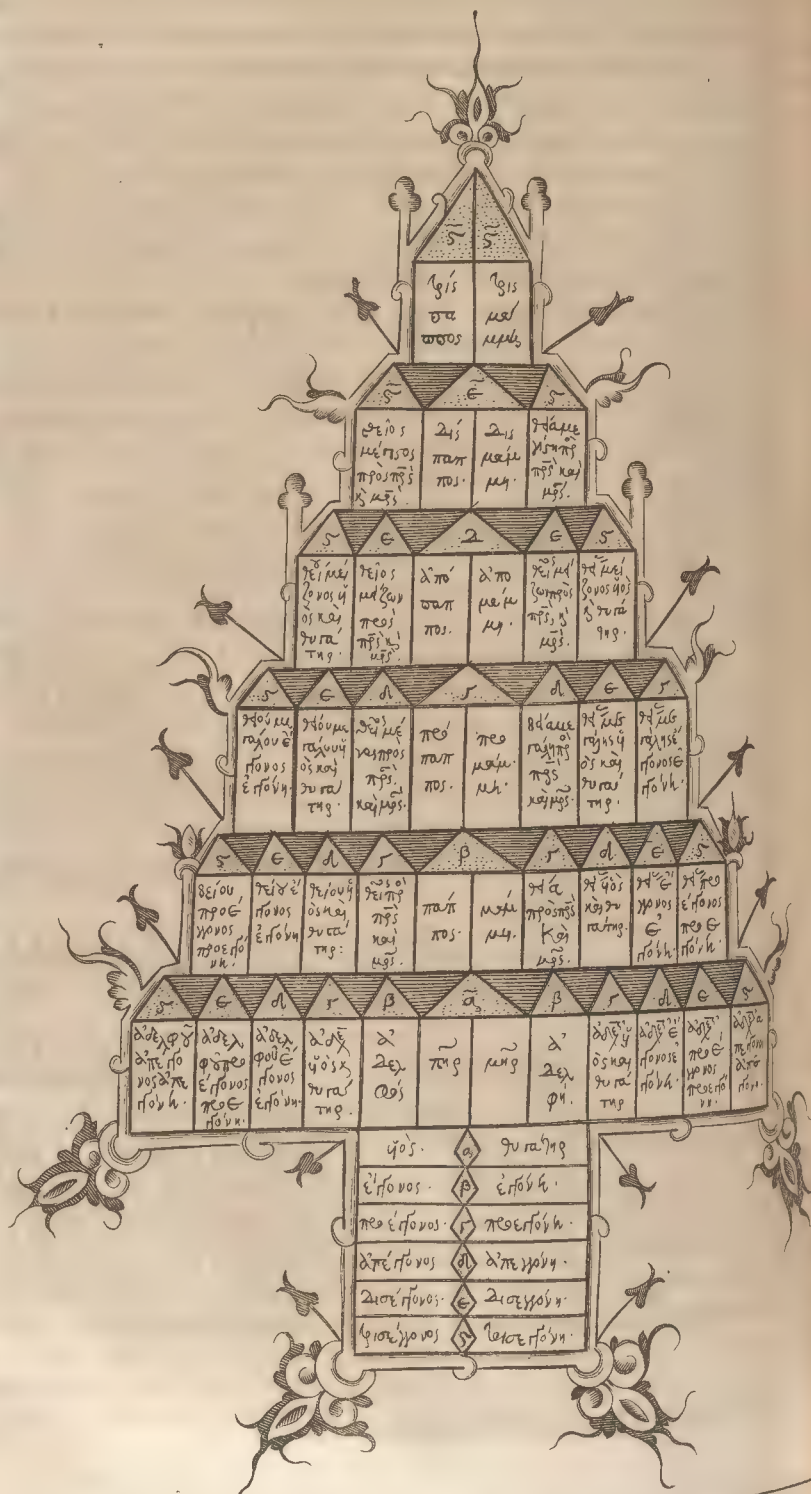 ϛ ϛ
τρίς
πά
ππος
τρίς
μαί
μμη
ϛ ε ϛ
θεῖος
μέγιστος
πρὸς πρ̅ς
κ̀ μρ̅ς.
Δίς
παπ
πος.
Δις
μαίμ
μη.
θεία με
γίστη πρ̀
πρ̅ς καὶ
μρ̅ς.
ϛ ε Δ ε ϛ
θείου μεί
ζονος υἱ
ὸς καὶ
θυγά
τηρ.
θεῖος
μείζων
πρὸς
πρ̅ς κ̀
μρ̅ς.
ἀπό
παπ
πος.
ἀπο
μαίμ
μη.
ζων πρὸς
πρ̅ς, κ̀
μρ̅ς.
ζονος υἱὸς
κ̀ θυγά
τηρ.
ϛ ε δ γ δ ε ϛ
θείου με
γάλου ἔγ
γονος
ἐγγόνη.
θείου με
γάλου υἱ
ὸς καὶ
θυγά
τηρ.
γας πρὸς
πρ̅ς.
καὶ μρ̅ς.
πρό
παπ
πος.
προ
μαίμ.
μη.
θεία με
γάλη πρ̀
πρ̅ς
καὶ μρ̅ς.
γάλης υἱ
ὸς καὶ
θυγά
τηρ.
γάλης ἔγ
γονος ἐγ
γόνη.
ϛ ε δ γ β γ δ ε ϛ
θείου
προέγ
γονος
προεγγό
νη.
θείου ἔγ
γονος
ἐγγόνη.
θείου υἱ
ὸς καὶ
θυγά
τηρ:
θεῖος πρ̀
πρ̅ς
καὶ
μρ̅ς.
πάπ
πος.
μαίμ
μη.
θεία
πρὸς πρ̅ς
Καὶ
μρ̅ς.
υἱὸς
καὶ θυ
γάτηρ.
γονος
ἐγ
γόνη.
έγγονος
προεγ
γόνη.
ϛ ε δ γ β α β γ δ ε ϛ
ἀδελφοῦ
ἀπέγγο
νος ἀπεγ
γόνη.
ἀδελ
φοῦ προ
έγγονος
προεγ
γόνη.
ἀδελ
φοῦ ἔγ
γονος
ἐγγόνη.
υἱὸς κ̀
θυγά
τηρ.
ἀ
Δελ
φός
πη̅ρ
μη̅ρ
ἀ
Δελ
φη.
ὸς καὶ
θυγά
τηρ
γονος ἐγ
γόνη.
προέγ
γονος
προεγγό
νη.
πέγγονος
ἀπεγ
γόνη.
υἱὸς. α θυγάτηρ
ἔγγονος. β ἐγγόνη.
προέγγονος. γ προεγγόνη.
ἀπέγγονος δ ἀπεγγόνη.
Δισέγγονος. ε Δισεγγόνη.
τρισέγγονος ϛ τρισεγγόνη.